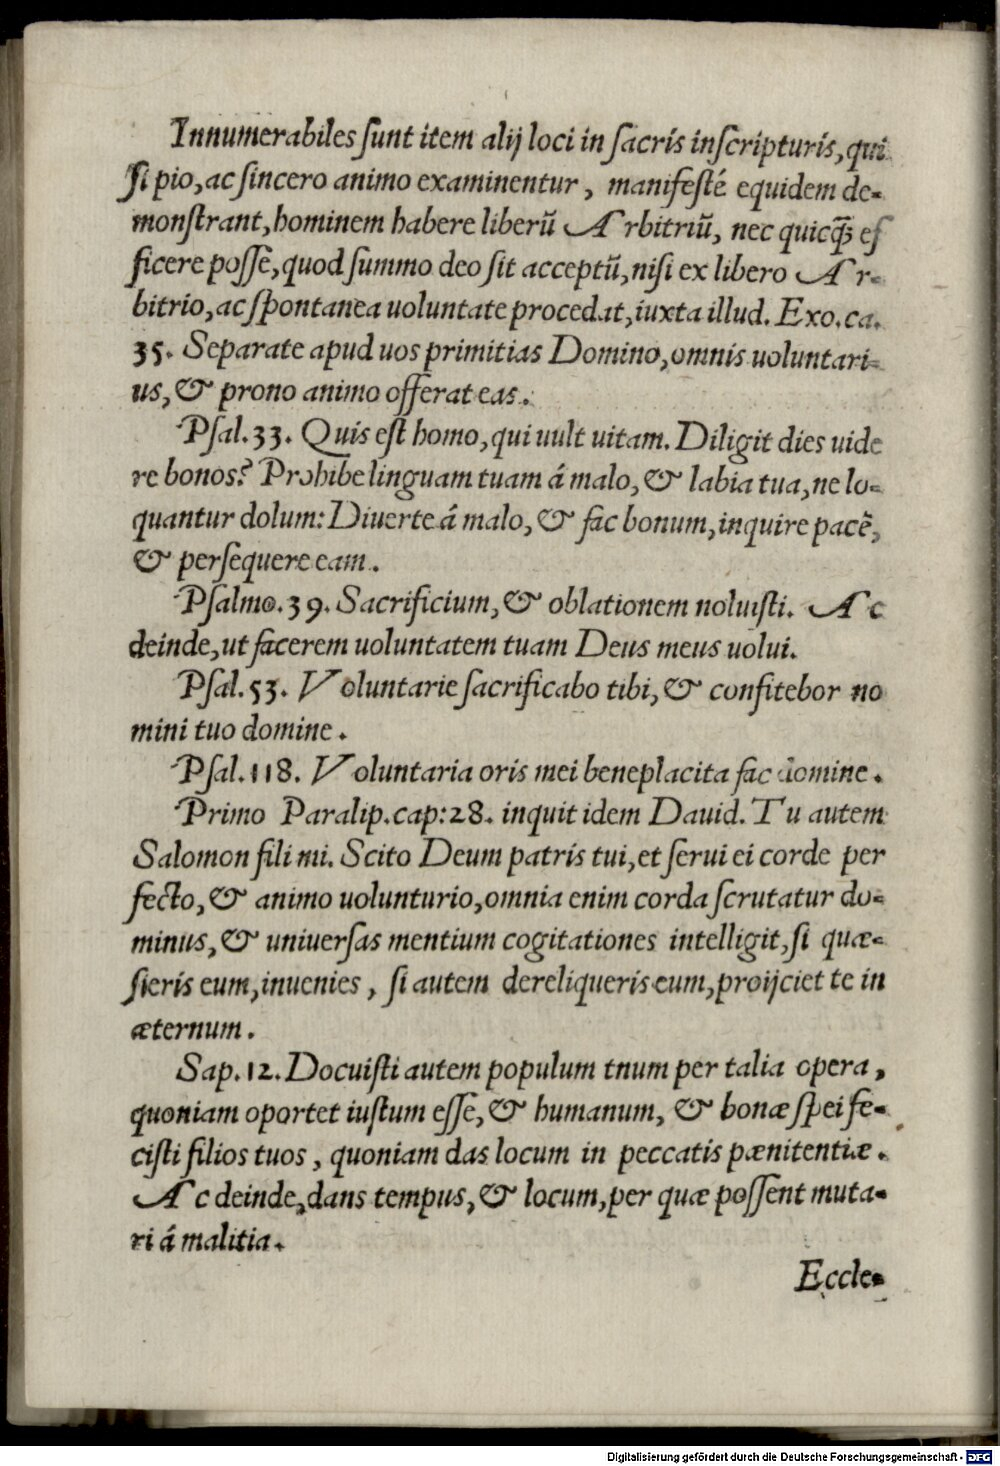 Innumerabiles ſunt item alij loci in ſacris inſcripturis, qui
ſi pio, ac ſincero animo examinentur, manifeſté equidem de-
monſtrant, hominem habere liberũ Arbitriũ, nec quicq̃ȝ eſ
ficere poſſe, quod ſummo deo ſit acceptũ, niſi ex libero Ar-
bitrio, ac ſpontanea uoluntate procedat, iuxta illud. Exo. ca.
35. Separate apud uos primitias Domino, omnis uoluntari-
us, & prono animo offerat eas.
Pſal. 33. Quis eſt homo, qui uult uitam. Diligit dies uide
re bonos? Prohibe linguam tuam á malo, & labia tua, ne lo-
quantur dolum: Diuerte á malo, & fac bonum, inquire pacẽ,
& perſequere eam.
Pſalmo. 39. Sacrificium, & oblationem noluiſti. Ac
deinde, ut facerem uoluntatem tuam Deus meus uolui.
Pſal. 53. Voluntarie ſacrificabo tibi, & confitebor no
mini tuo domine.
Pſal. 118. Voluntaria oris mei beneplacita fac domine.
Primo Paralip. cap: 28. inquit idem Dauid. Tu autem
Salomon fili mi. Scito Deum patris tui, et ſerui ei corde per
fecto, & animo uolunturio, omnia enim corda ſcrutatur do-
minus, & uniuerſas mentium cogitationes intelligit, ſi quæ-
ſieris eum, inuenies, ſi autem dereliqueris eum, proijciet te in
æternum.
Sap. 12. Docuiſti autem populum tnum per talia opera,
quoniam oportet iuſtum eſſe, & humanum, & bonæ ſpei fe-
ciſti filios tuos, quoniam das locum in peccatis pænitentiæ.
Ac deinde, dans tempus, & locum, per quæ poſſent muta-
ri á malitia.
Eccle-
Digitalisierung gefördert durch die Deutsche Forschungsgemeinschaft - DFG